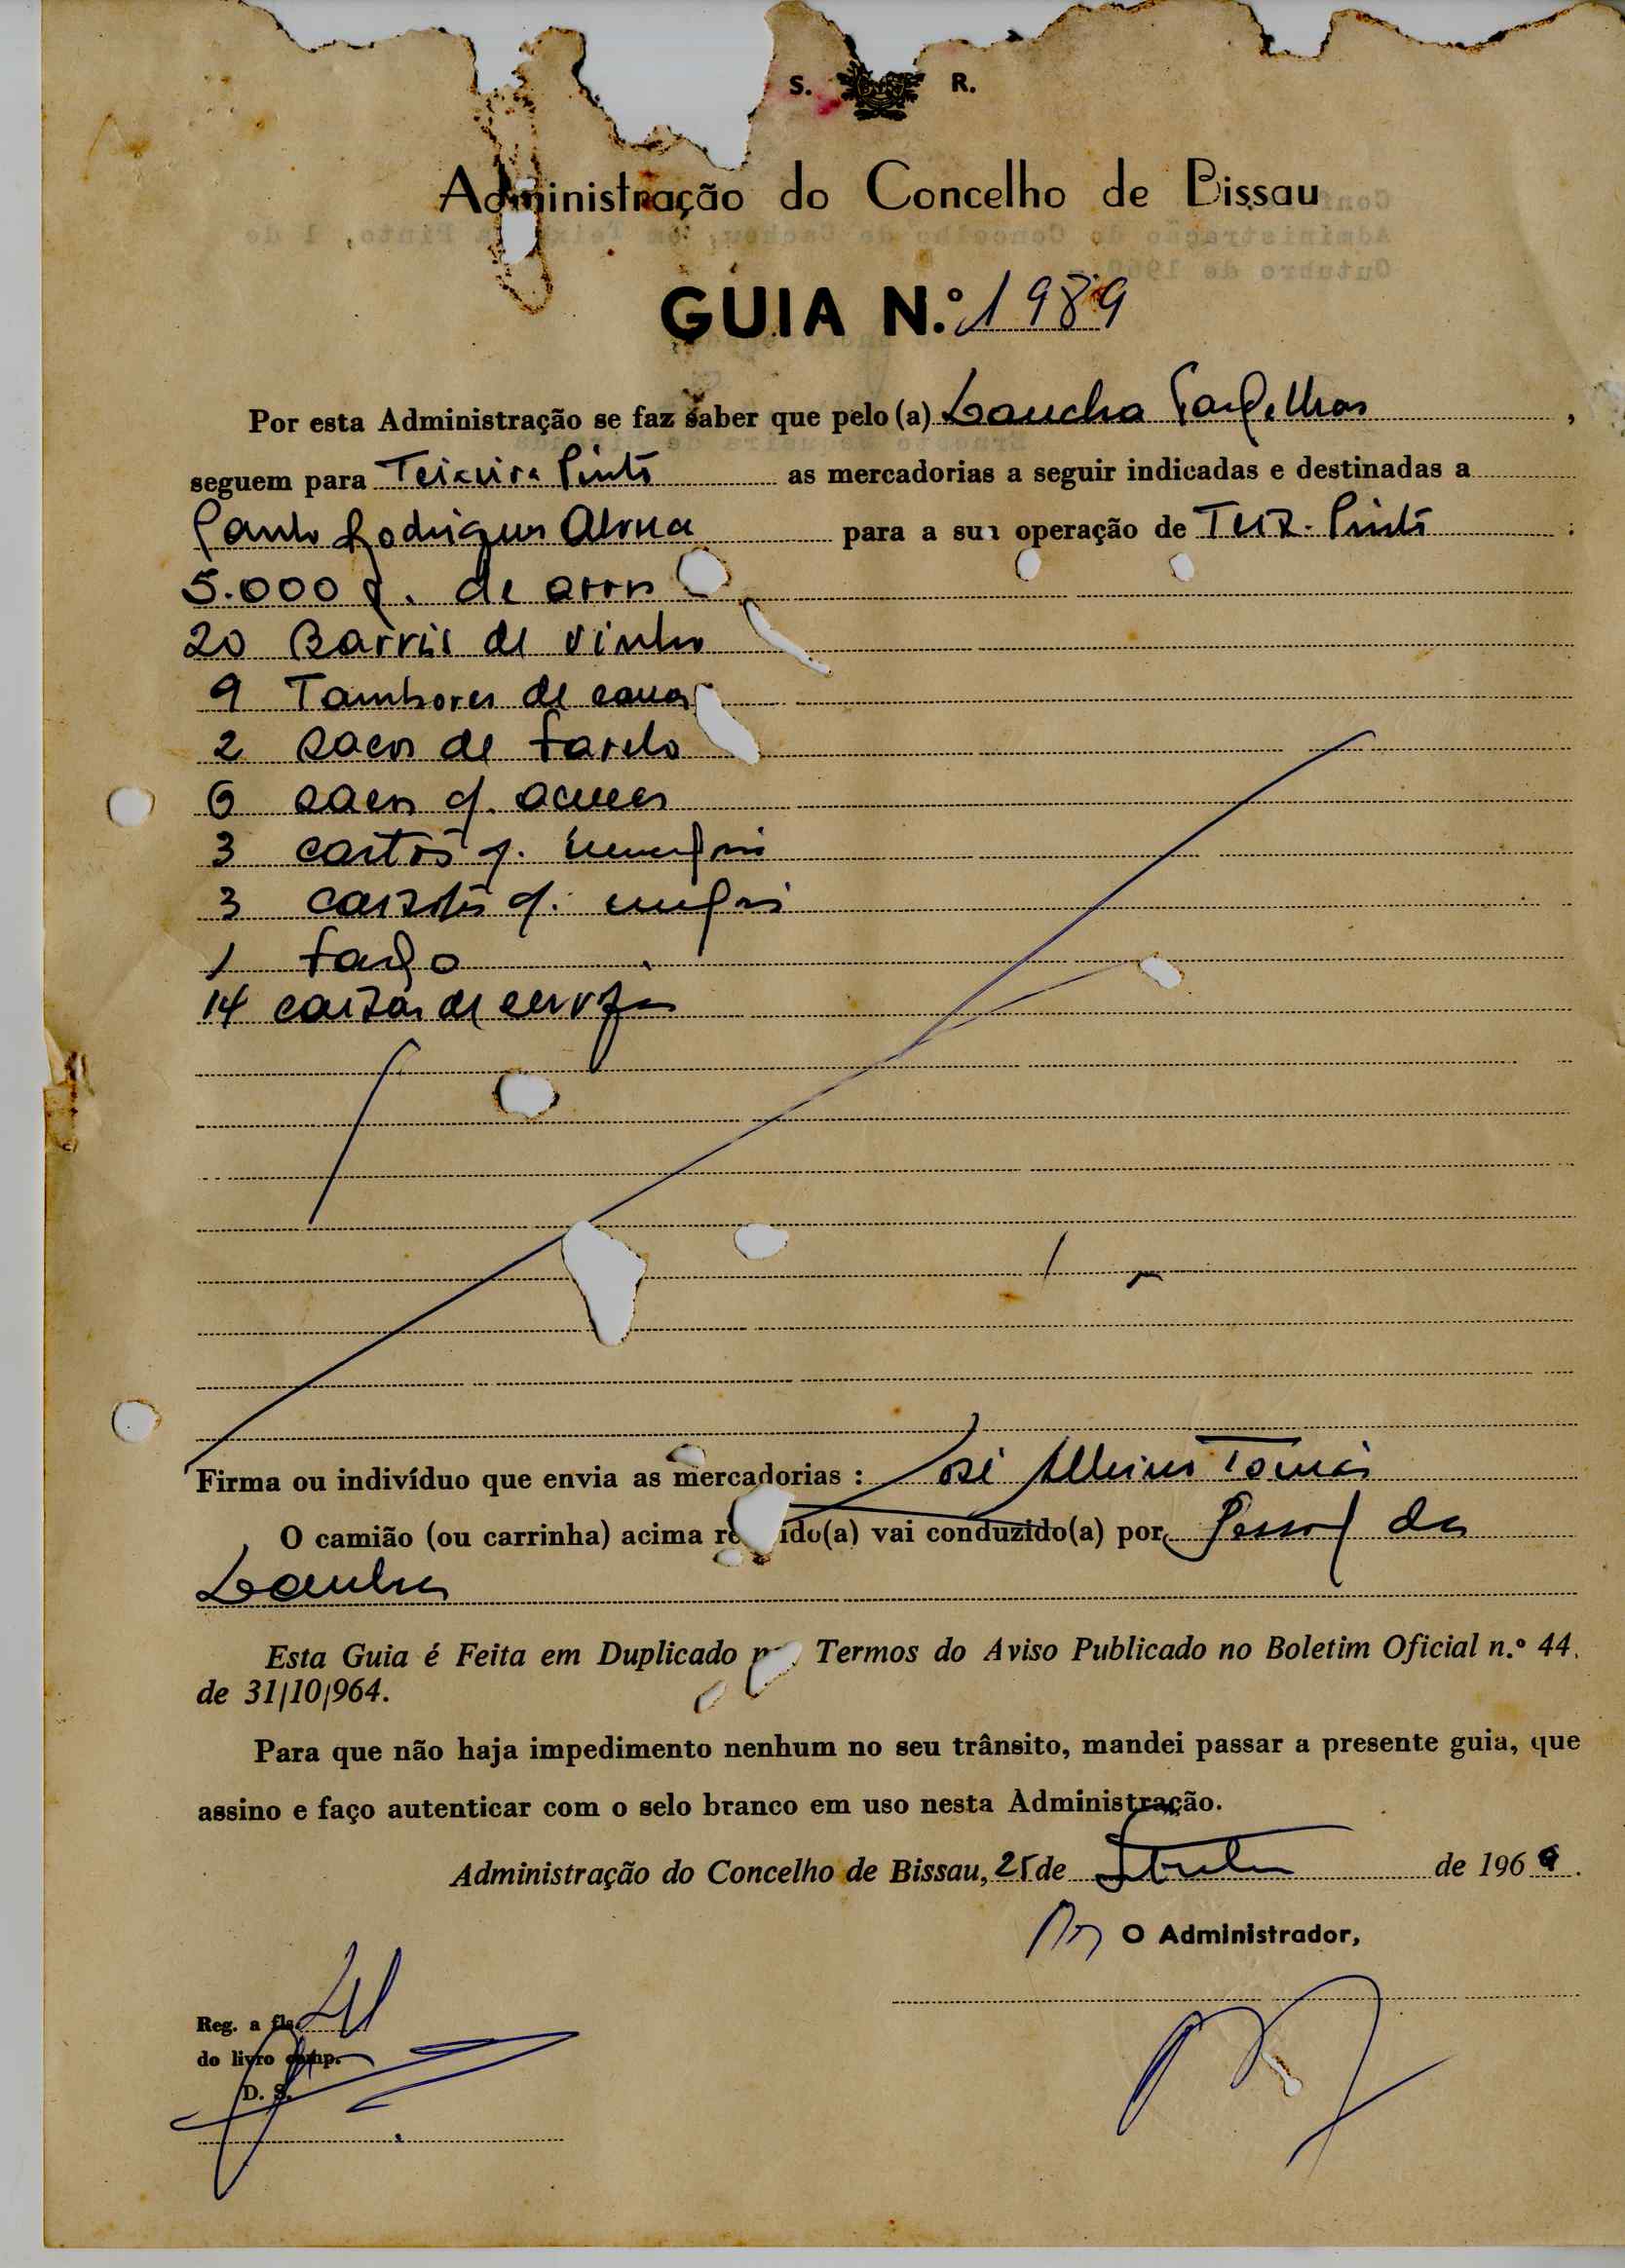 S. R.
Administração do Concelho de Bissau
GUIA N.º 1989
Por esta Administração se faz saber que pelo (a) Lancha ,
seguem para Teixeira Pinto as mercadorias a seguir indicadas e destinadas a
Paulo Rodrigues para a sua operação de Teix. Pinto :
5.000 q. de arroz
20 Barris de vinho
9 Tambores de cana
2 sacos de farelo
6 sacos c/.
3 c/.
3 caixotes c/.
1 fardo
14 caixas de cerveja
Firma ou indivíduo que envia as mercadorias : José Tomás
O camião (ou carrinha) acima re ido(a) vai conduzido(a) por Pessoal da
Lancha
Esta Guia é Feita em Duplicado n Termos do Aviso Publicado no Boletim Oficial n.º 44.
de 31/10/964.
Para que não haja impedimento nenhum no seu trânsito, mandei passar a presente guia, que
assino e faço autenticar com o selo branco em uso nesta Administração.
Administração do Concelho de Bissau, 25 de Setembro de 1969.
O Administrador,
Reg. a fls.
do livro comp.
D. S.